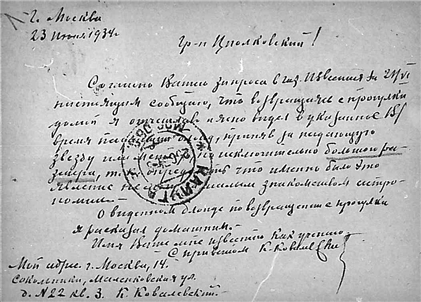 г. Москва
23 июня 1934г.
Гр-н Циолковский!
Согласно Вашего запроса в газ. Известия за 21/VI
настоящим сообщаю, что возвращаясь с прогулки
домой я отчетливо и ясно видел в указанное 18/
время приняв за падающую
звезду исключительно большого раз-
мера, что именно было это
знакомством с астро-
номией.
О виденном болиде по возвращении с прогулки
я рассказал домашним.
Имя Ваше мне известно как ученого
С приветом К. Ковалевский
Мой адрес: г. Москва, 14.
Сокольники, Маленковская ул.
д. №22 кв. 3. К. Ковалевский.
КАЛУГА